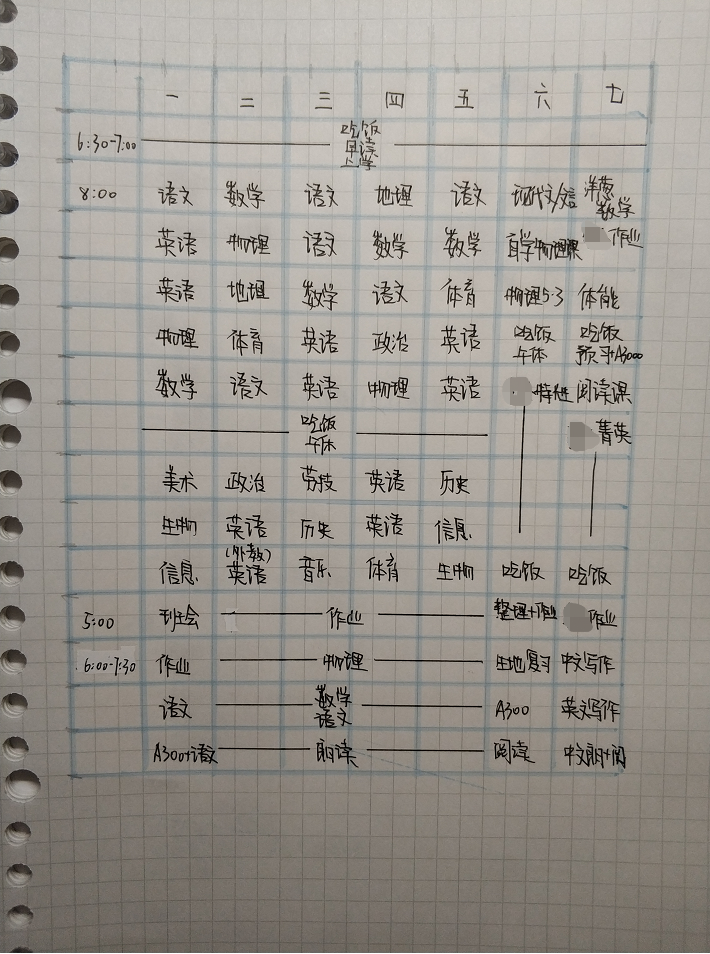 一 二 三 四 五 六 七
6:30-7:00 吃饭
早读
上学
8:00 语文 数学 语文 地理 语文 现代文/ 洋葱
数学
英语 物理 语文 数学 数学 自学物理课 作业
英语 地理 数学 语文 体育 物理5·3 体能
物理 体育 英语 政治 英语 吃饭 吃饭
午休 预习+A3000
数学 语文 英语 物理 英语 特进 阅读课
吃饭 菁英
午休
美术 政治 劳技 英语 历史
生物 英语 历史 英语 信息
(外教)
信息 英语 音乐 体育 生物 吃饭 吃饭
5:00 班会 作业 整理+作业 作业
6:00-7:30 作业 物理 生地复习 中文写作
语文 数学
语文 A300 英文写作
A300+语文 朗读 阅读 中文朗+阅